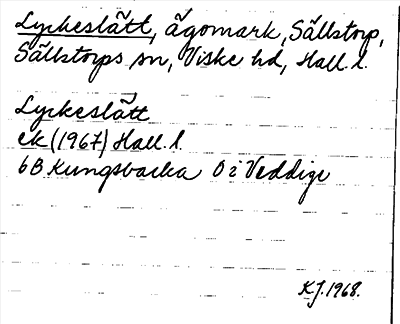 Lyckeslätt, ägomark, Sällstorp,
Sällstorps sn, Viske hd, Hall. l.
Lyckeslätt
ek (1967) Hall. l.
6B Kungsbacka 0 i Veddige
KJ. 1968.